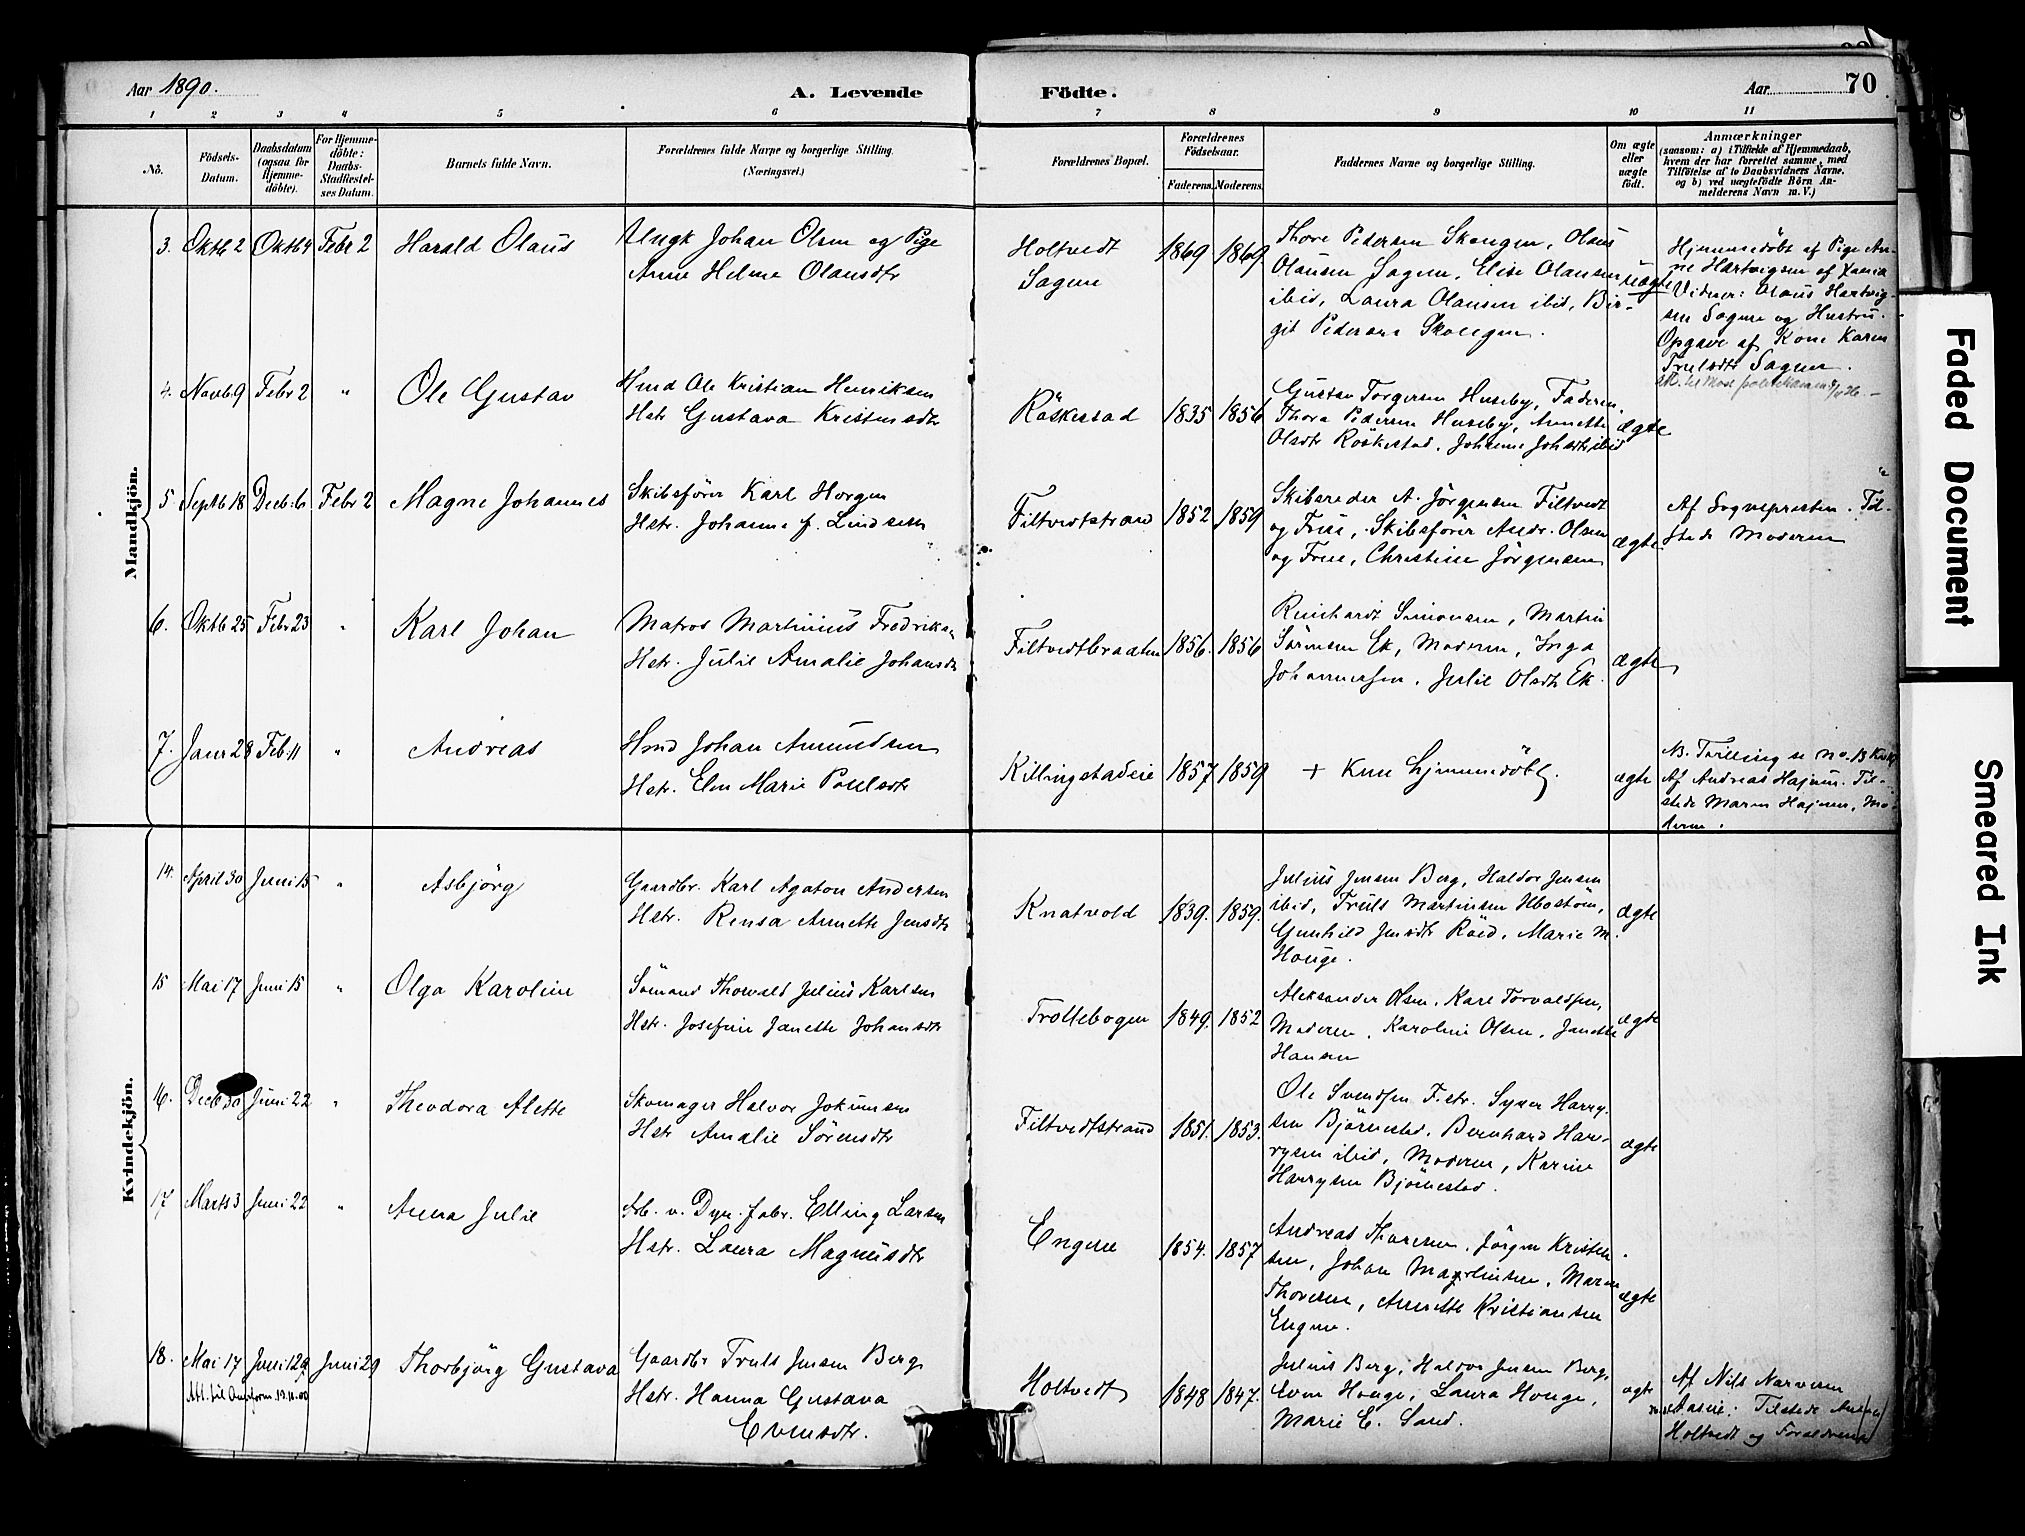 Aar 1890.
A. Levende Födte.
Aar 70
1 2 3 4 5 6 7 8 9 10 11
No.
Födsels-
Datum.
Daabsdatum
(ogsaa for
Hjemme-
döbte).
For Hjemme-
döbte:
Daabs-
Stadfæstel-
ses Datum.
Barnets fulde Navn.
Forældrenes fulde Navne og borgerlige Stilling.
(Næringsvei.)
Forældrenes Bopæl.
Forældrenes
Födselsaar.
Faderens. Moderens.
Faddernes Navne og borgerlige Stilling.
Om ægte
eller
uægte
födt.
Anmærkninger
(saasom: a) i Tilfælde af Hjemmedaab,
hvem der har forrettet samme, med
Tilföielse af to Daabsvidners Navne.
og b) ved uægtefödte Börn An-
melderens Navn m. V.)
Mandkjön.
3. Oktb 2 Oktb 4 Febr 2 Harald Olaus
Ungk Johan Olsen og Pige
Anne Helene Olausdtr
Holtvedt
Sagene
1869 1869.
Thore Pedersen Skougen, Olaus
Olausen Sagene, Elise Olausen
ibid, Laura Olausen ibid, Bir-
git Pedersen Skougen.
uægte
Hjemmedöbt af Pige An-
ne Hartvigsen af Xania
Vidner: Olaus Hartvig-
sen Sagene og Hustru.
Opgave af Kone Karen
Trulsdtr Sagene.
4. Novb 9 Febr 2 " Ole Gustav
Hmd Ole Kristian Henriksen
Hstr Gustava Kristensdtr
Röskestad
1835 1856
Gustav Torgersen Huseby, Faderen,
Thora Pedersen Huseby, Annette
Olsdtr Röskestad, Johanne Johsdtr ibid
ægte
5 Septb 18 Decb: 6 Febr 2 Magne Johannes
Skibsförer Karl Horgen
Hstr. Johanne f. Lindsen
Filtvedtstrand
1852 1859
Skibsreder A. Jörgensen Filtvedt
og Frue, Skibsförer Andr. Olsen
og Frue, Christine Jörgensen
ægte
Af Sognepresten. Til-
stede Moderen
6. Oktb 25 Febr 23 " Karl Johan
Matros Martinius Fredriksen
Hstr. Julie Amalie Johansdtr
Filtvedtbraaten
1856. 1856
Reinhardt Simonsen, Martin
Sörensen Ek, Moderen, Inga
Johannessen, Julie Olsdtr Ek.
ægte
7. Janr 28 Feb. 11 " Andreas
Hmd Johan Amundsen
Hstr. Elen Marie Poulsdtr
Killingstadeie
1857 1859
+ Kun hjemmedöbt.
ægte
NB. Tvilling se No. 13 Kvk.
Af Andreas Hajum. Til-
stede Maren Hajum, Mo-
deren.
Kvindekjön.
14. April 30 Juni 15 " Asbjörg
Gaardbr. Karl Agaton Andersen
Hstr. Rensa Annette Jensdtr
Knatvold
1839. 1859.
Julius Jensen Berg, Haldor Jensen
ibid, Truls Martinsen
Gunhild Jensdtr Röed, Marie M.
Houge.
ægte
15 Mai 17 Juni 15 " Olga Karoline
Sömand Thorvald Julius Karlsen
Hstr. Josefine Janette Johansdtr
Trollebogen
1849. 1852
Aleksander Olsen, Karl Torvaldsen,
Moderen, Karoline Olsen, Janette
Hansen
ægte
16. Decb 30 Juni 22 " Theodora Alette
Skomager Halvor Jokumsen
Hstr Amalie Sörensdtr
Filtvedtstrand
1851. 1853.
Ole Svendsen F.str. Syver Harry-
sen Björnestad, Bernhard Har-
rysen ibid, Moderen, Karine
Harrysen Björnestad.
ægte
17 Marts 3 Juni 22 " Anna Julie
Arb. v. Dyn. fabr. Elling Larsen
Hstr. Laura Magnusdtr
Engene
1854. 1857
Andreas Thoresen, Jörgen Kristen-
sen, Johan Martinsen, Maren
Thoresen, Annette Kristiansen
Engene.
ægte
18. Mai 17 Juni 29 Thorbjörg Gustava
Gaardbr Truls Jensen Berg
Hstr. Hanna Gustava
Evensdtr.
Holtvedt
1848 1847.
Julius Berg, Haldor Jensen Berg,
Even Houge, Laura Houge,
Marie E. Sand.
ægte
Af Nils Narvesen
Tilstede
Holtvedt og Forældrene
Faded Document
Smeared Ink